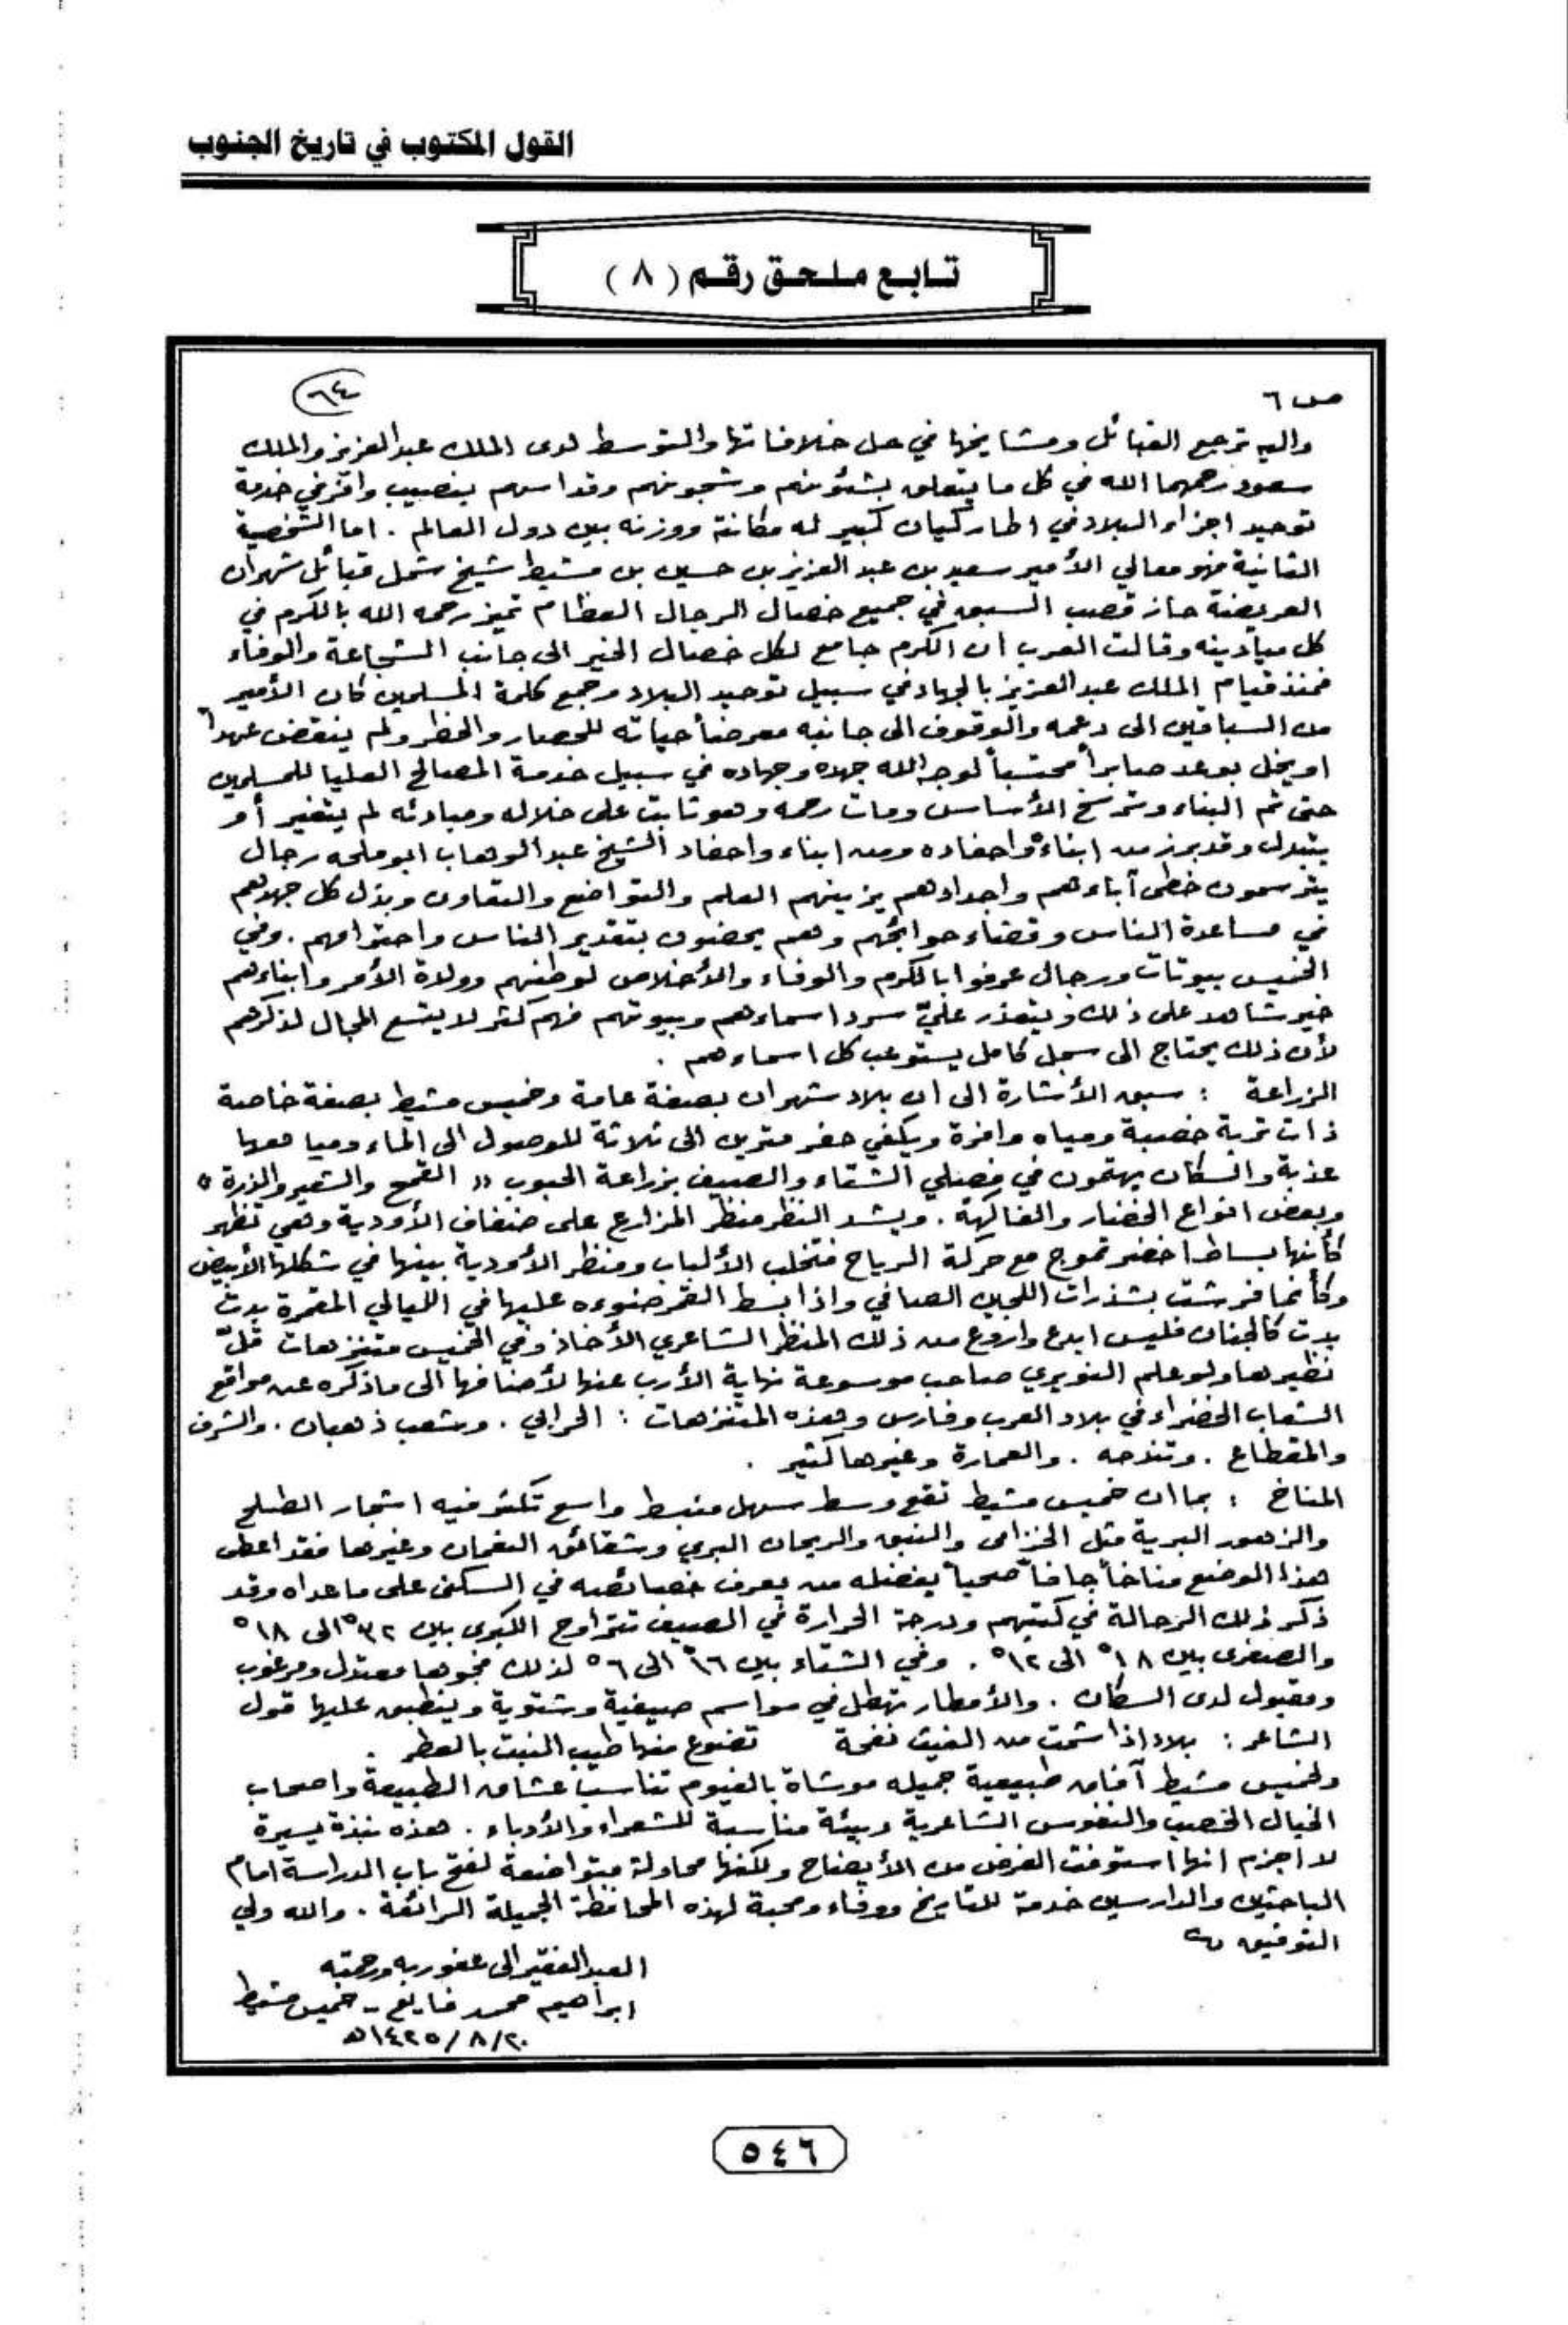 القول المكتوب في تاريخ الجنوب
تابع ملحق رقم ( ٨ )
ص ٦
واليه ترجع القبائل ومشايخها في حل خلافاتها والتوسط لدى الملك عبدالعزيز والملك
سعود رحمهما الله في كل ما يتعلق بشئونهم وشجونهم وقد اسهم بنصيب وافر في خدمة
توحيد اجزاء البلاد في اطار كيان كبير له مكانة ووزنه بين دول العالم . اما الشخصية
الثانية فهو معالي الأمير سعيد بن عبد العزيز بن حسين بن مشيط شيخ شمل قبائل شهران
العريضة حاز قصب السبق في جميع خصال الرجال العظام تميز رحمه الله بالكرم في
كل ميادينه وقالت العرب ان الكرم جامع لكل خصال الخير الى جانب الشجاعة والوفاء
فمنذ قيام الملك عبد العزيز بالجهاد في سبيل توحيد البلاد وجمع كلمة المسلمين كان الأمير
من السباقين الى دعمه والوقوف الى جانبه معرضاً حياته للحصار والخطر ولم ينقض عهداً
او يخل بوعد صابراً محتسباً لوجه الله جهده وجهاده في سبيل خدمة المصالح العليا للمسلمين
حتى تم البناء وترسخ الأساس ومات رحمه وهو ثابت على خلاله ومبادئه لم يتغير أو
يتبدل وقد برز من ابناءه واحفاده ومن ابناء واحفاد الشيخ عبد الوهاب ابو ملحه رجال
يترسمون خطى آباءهم واجدادهم يزينهم العلم والتواضع والتعاون وبذل كل جهدهم
في مساعدة الناس وقضاء حوائجهم وهم يحضون بتقدير الناس واحترامهم . وفي
الخميس بيوتات ورجال عرفوا بالكرم والوفاء والأخلاص لوطنهم وولاة الأمر وابناءهم
خير شاهد على ذلك ويتعذر عليّ سرد اسماءهم وبيوتهم فهم كثر لا يتسع المجال لذكرهم
لأن ذلك يحتاج الى سجل كامل يستوعب كل اسماءهم .
الزراعة : سبق الأشارة الى ان بلاد شهران بصفة عامة وخميس مشيط بصفة خاصة
ذات تربة خصبة ومياه وافرة ويكفي حفر مترين الى ثلاثة للوصول الى الماء ومياهها
عذبة والسكان يهتمون في فصلي الشتاء والصيف بزراعة الحبوب (( القمح والشعير والذرة ))
وبعض انواع الخضار والفاكهة . ويشد النظر منظر المزارع على ضفاف الأودية وهي تظهر
كأنها بساط اخضر تموج مع حركة الرياح فتخلب الألباب ومنظر الأودية بينها في شكلها الأبيض
وكأنما فرشت بشذرات اللجين الصافي واذا بسط القمر ضوءه عليها في الليالي المقمرة بدت
بدت كالجنان فليس ابدع واروع من ذلك المنظر الشاعري الأخاذ وفي الخميس متنزهات قلّ
نظيرها ولو علم النويري صاحب موسوعة نهاية الأرب عنها لأضافها الى ما ذكره عن مواقع
الشعاب الخضراء في بلاد العرب وفارس وهذه المتنزهات : الحرابي . وشعب ذهبان . والشرف
والمقطاع . وتندحه . والعمارة وغيرها كثير .
المناخ : بما ان خميس مشيط تقع وسط سهل منبسط واسع تكثر فيه اشجار الطلح
والزهور البرية مثل الخزامى والنبق والريحان البري وشقائق النعمان وغيرها فقد اعطى
هذا الوضع مناخاً جافاً صحياً يفضله من يعرف خصائصه في السكن على ما عداه وقد
ذكر ذلك الرحالة في كتبهم ودرجة الحرارة في الصيف تتراوح الكبرى بين ٣٢° الى ١٨°
والصغرى بين ١٨° الى ١٢° . وفي الشتاء بين ١٦° الى ٦° لذلك فجوها معتدل ومرغوب
ومقبول لدى السكان . والأمطار تهطل في مواسم صيفية وشتوية وينطبق عليها قول
الشاعر : بلاد اذا شمت من الغيث نفحة تضوع منها طيب النبت بالعطر .
ولخميس مشيط آفاق طبيعية جميله موشاة بالغيوم تناسب عشاق الطبيعة واصحاب
الخيال الخصيب والنفوس الشاعرية وبيئة مناسبة للشعراء والأدباء . هذه نبذة يسيرة
لا اجزم انها استوفت الغرض من الأيضاح ولكنها محاولة متواضعة لفتح باب الدراسة امام
الباحثين والدارسين خدمة للتاريخ ووفاء ومحبة لهذه المحافظة الجميلة الرائعة . والله ولي
التوفيق
العبد الفقير الى عفو ربه ورحمته
ابراهيم محمد فايع - خميس مشيط
٢٠/٨/١٤٢٥هـ
٥٤٦